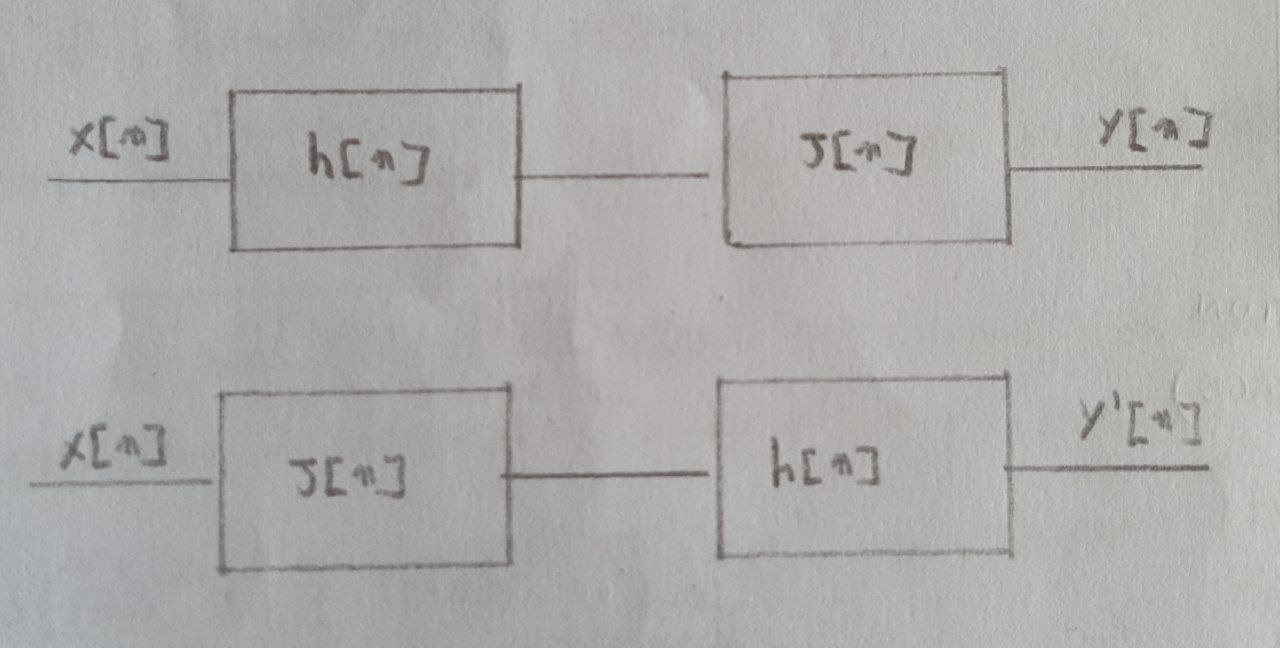 x[n] h[n] J[n] y[n]
x[n] J[n] h[n] y'[n]